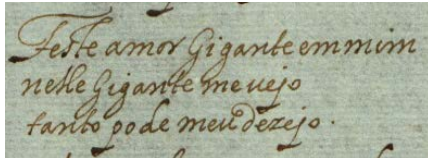 Feste amor Gigante em mim
nelle Gigante me uejo
tanto pode meu dezejo.